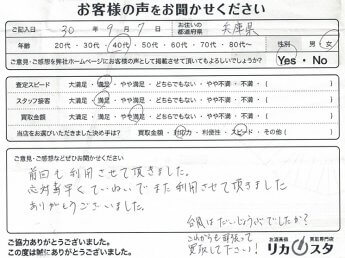 お客様の声をお聞かせください
ご記入日 30年 9月 7日 お住いの都道府県 兵庫県
年齢 20代・30代・40代・50代・60代・70代・80代〜 性別 男・女
ご意見・ご感想を弊社ホームページにお客様の声として掲載させて頂いてもよろしいでしょうか? Yes・No
査定スピード 大満足・満足・やや満足・どちらでもない・やや不満・不満・( )
スタッフ接客 大満足・満足・やや満足・どちらでもない・やや不満・不満・( )
買取金額 大満足・満足・やや満足・どちらでもない・やや不満・不満・( )
当店をお選びいただきました決め手は? 買取金額・信頼力・利便性・スピード・その他( )
ご意見・ご感想などぜひお聞かせください
前回も利用させて頂きました。
応対も早くていねいでまた利用させて頂きました
ありがとうございました。
台風はだいじょうぶでしたか?
これからも頑張って
買取して下さい!
ご協力ありがとうございました。
この度は誠にありがとうございました。
お酒高価買取専門店
リカスタ